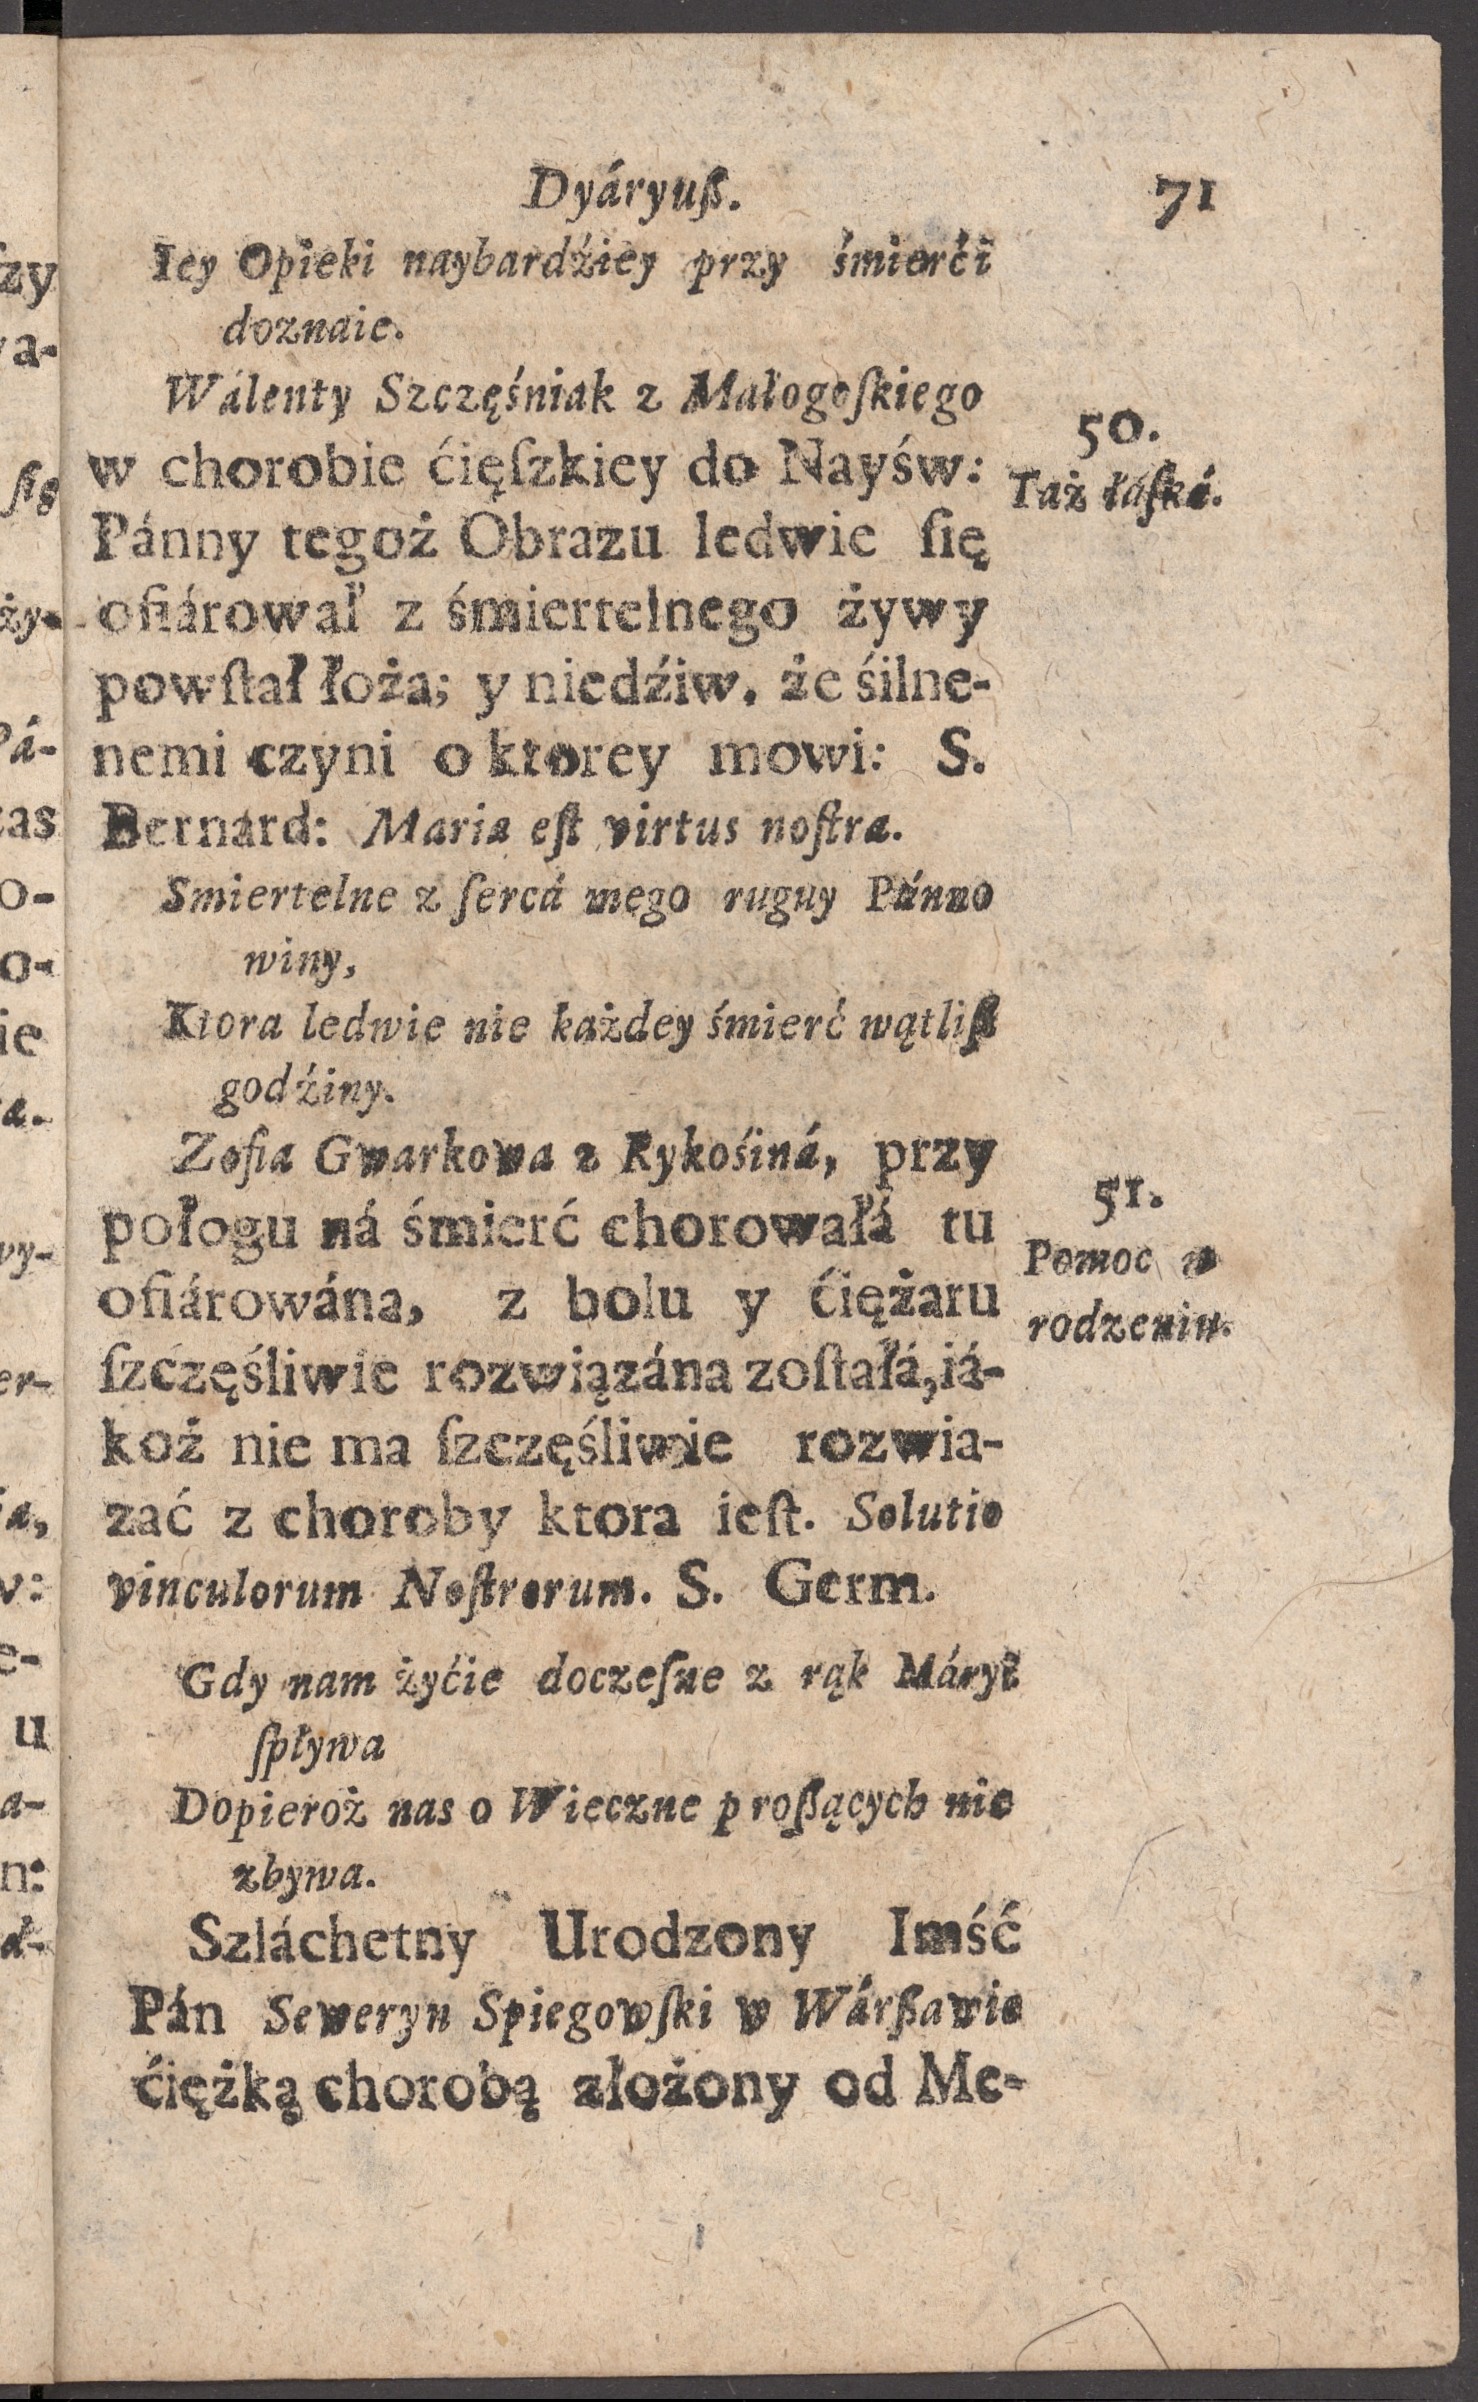 Dyáryuß. 71
Iey Opieki naybardźiey przy śmierći
doznaie.
Wálenty Szczęśniak z Małogoſkiego
50.
w chorobie ćięſzkiey do Nayśw:
Taż łáſká.
Pánny tegoż Obrazu ledwie ſię
ofiárował z śmiertelnego żywy
powſtał łoża; y niedźiw, że śilne-
nemi czyni o ktorey mowi: S.
Bernard: Maria eſt virtus noſtra.
Smiertelne z ſercá mego ruguy Pánno
winy,
Ktora ledwie nie każdey śmierć wątliß
godźiny.
Zofia Gwarkowa z Rykośiná, przy
51.
połogu ná śmierć chorowałá tu
Pomoc w
ofiárowána, z bolu y ćiężaru
rodzeniu.
ſzczęśliwie rozwiązána zoſtałá, iá-
koż nie ma ſzczęśliwie rozwia-
zać z choroby ktora ieſt. Solutio
vinculorum Noſtrorum. S. Germ.
Gdy nam żyćie doczeſne z rąk Máryi
ſpływa
Dopieroż nas o Wieczne proßących nie
zbywa.
Szláchetny Urodzony Imść
Pán Seweryn Spiegowſki w Wárßawie
ćiężką chorobą złożony od Me-